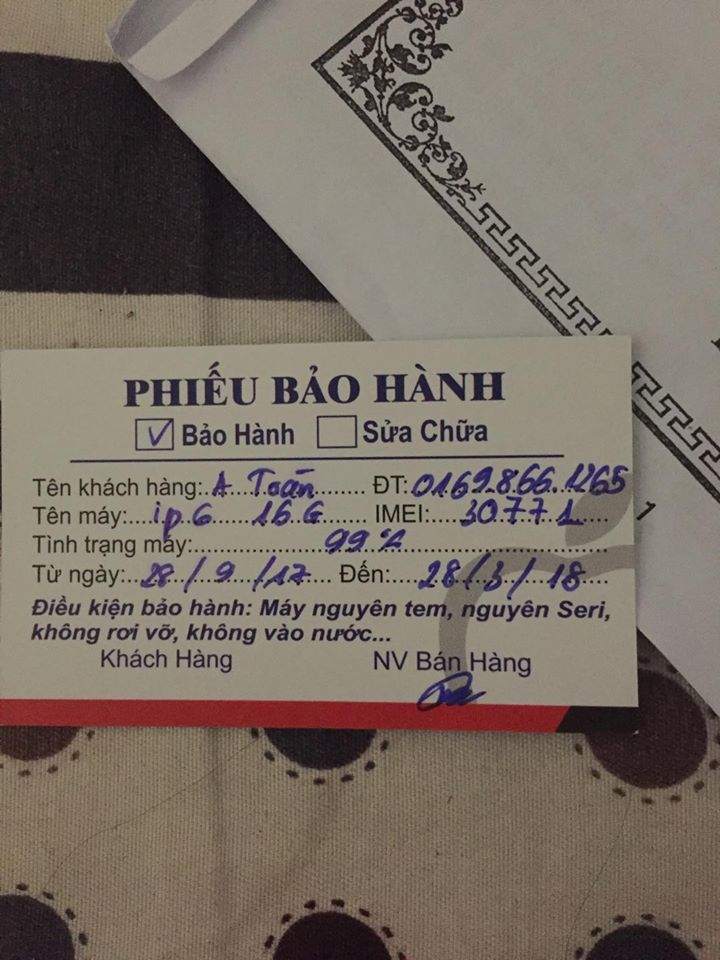 PHIẾU BẢO HÀNH
☑ Bảo Hành ☐ Sửa Chữa
Tên khách hàng:..A Toản............ ĐT:.0169.866.1265
Tên máy:...ip 6......16 G...... IMEI:....30771.....
Tình trạng máy:...............99%.............................
Từ ngày:..28./..9../17... Đến:....28/3/.18...
Điều kiện bảo hành: Máy nguyên tem, nguyên Seri,
không rơi vỡ, không vào nước...
Khách Hàng NV Bán Hàng